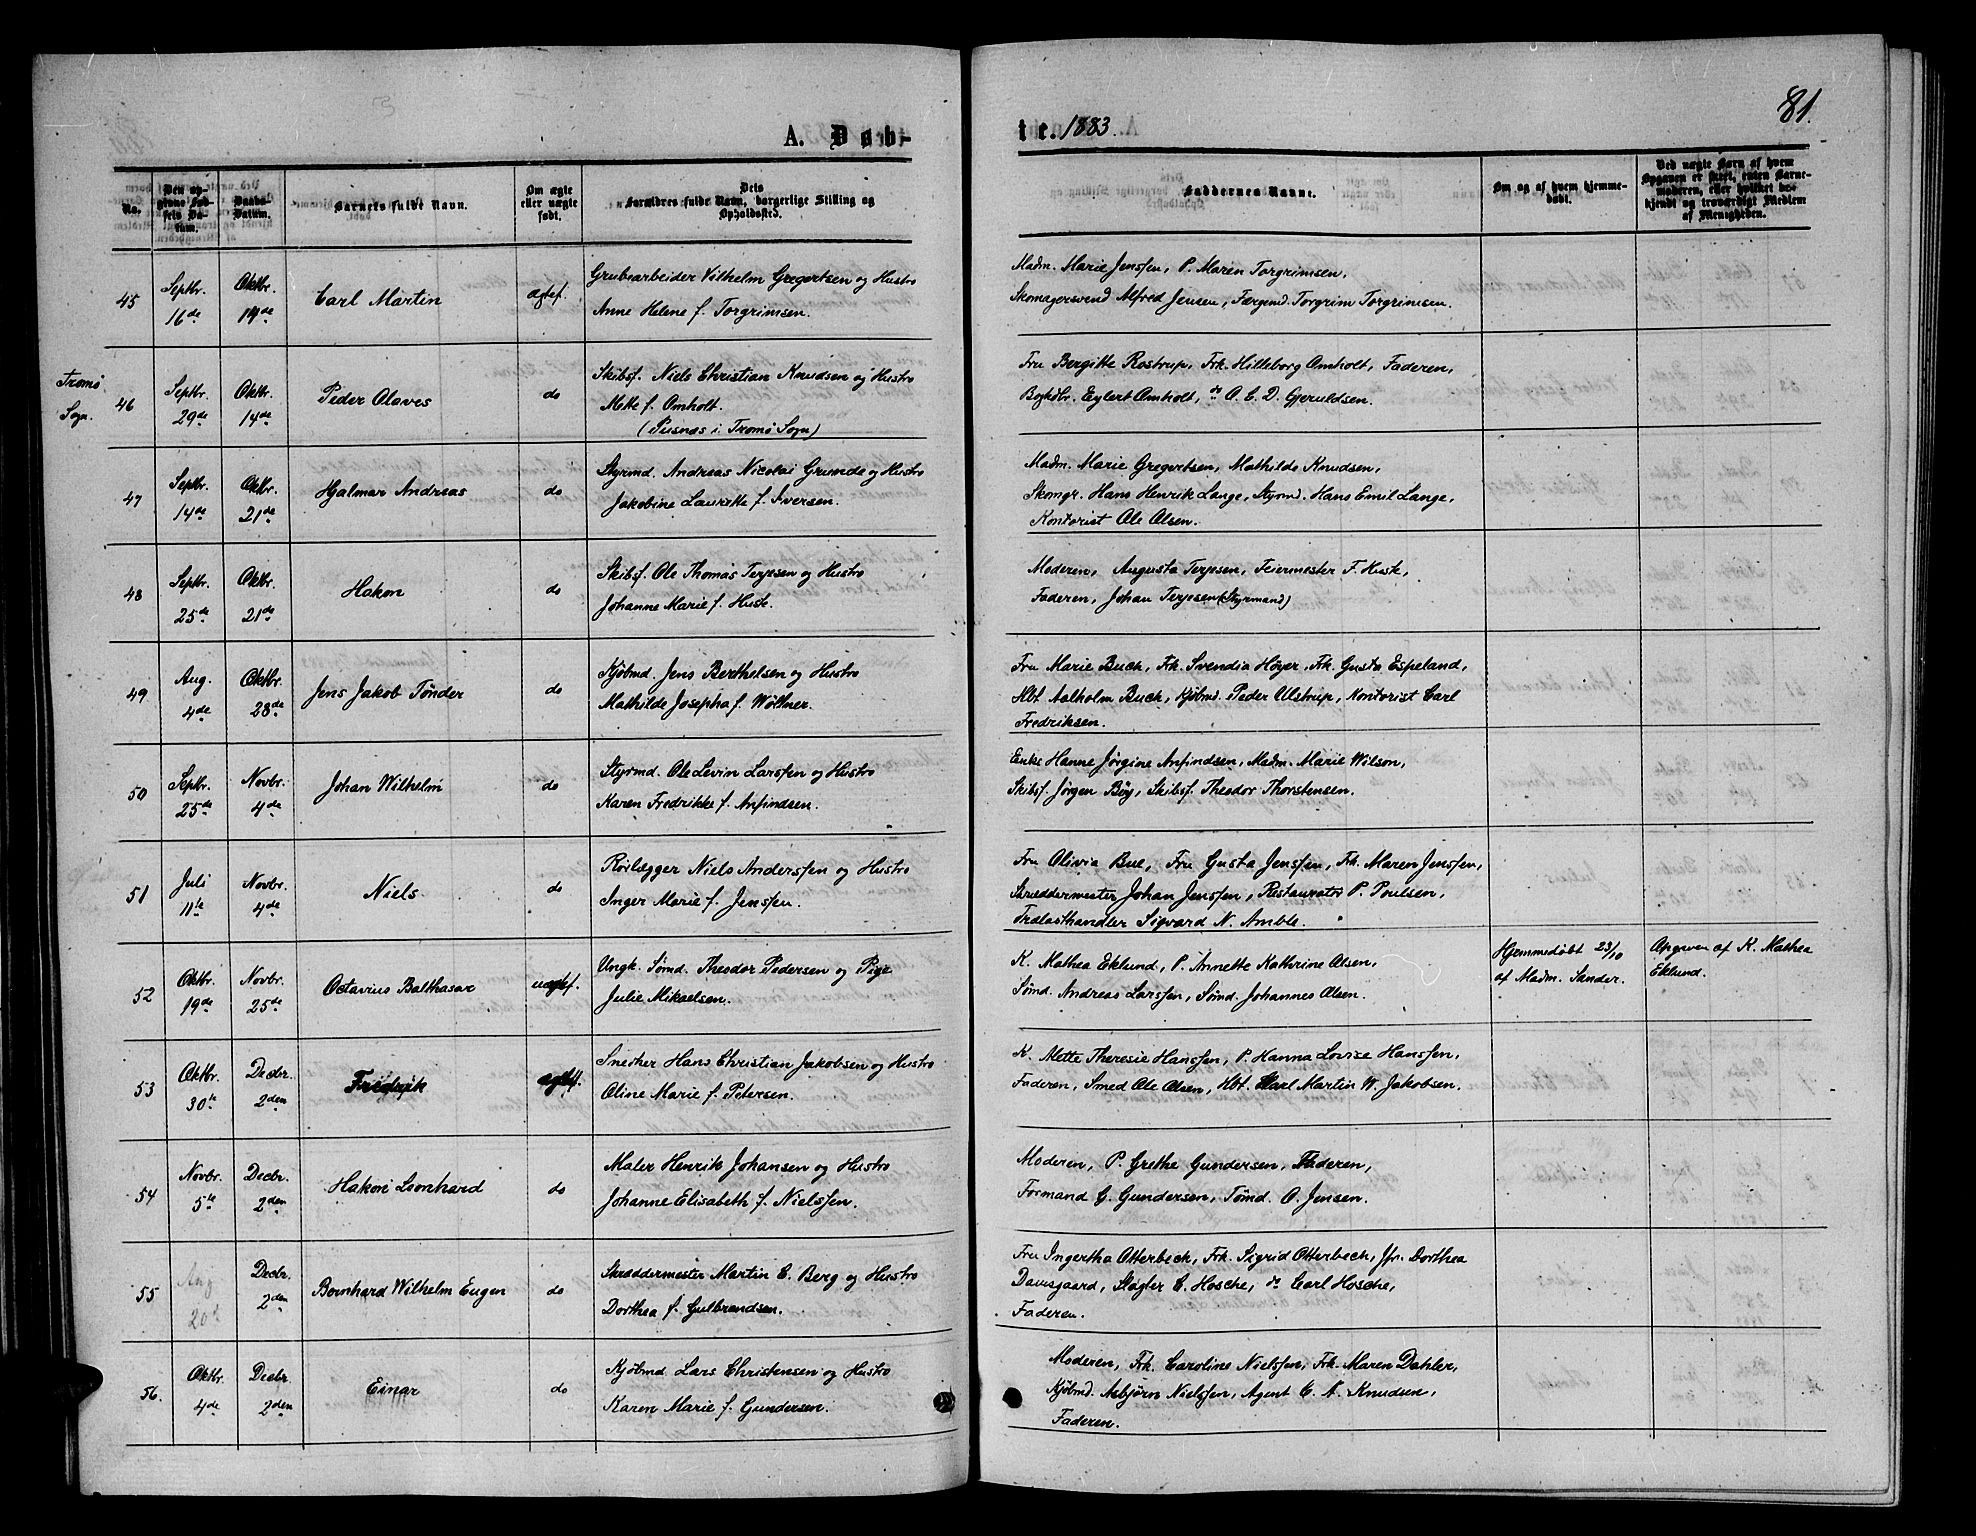 81.
A. Døb-
te. 1883.
No.
Den op-
givne Fød-
sels Da-
tum.
Daabs-
Datum.
Barnets fulde Navn.
Om ægte
eller uægte
født.
Dets
Forældres fulde Navn, borgerlige Stilling og
Opholdssted.
Faddernes Navne.
Om og af hvem hjemme-
døbt.
Ved uægte Børn af hvem
Opgaven er skeet, enten Barne-
moderen, eller hvilket be-
kjendt og troværdigt Medlem
af Menigheden.
45
Septbr.
16de
Oktbr.
14de
Carl Martin
ægtef.
Grubearbeider Vilhelm Gregertsen og Hustro
Anne Helene f. Torgrimsen.
Madm. Marie Jensen, P. Maren Torgrimsen,
Skomagersvend Alfred Jensen, Færgemd. Torgrim Torgrimsen.
Tromø
Sogn.
46
Septbr.
29de
Oktbr.
14de
Peder Olaves
do
Skibsf. Niels Christian Knudsen og Hustro
Mette f. Omholt.
(Pusnæs i Tromø Sogn)
Fru Bergitte Rostrup, Frk. Hilleborg Omholt, Faderen,
Eylert Omholt, do O. E. D. Gjeruldsen.
47
Septbr.
14de
Oktbr.
21de
Hjalmar Andreas
do
Styrmd. Andreas Nicolai Grunde og Hustro
Jakobine Laurette f. Iversen.
Madm. Marie Gregertsen, Mathilde Knudsen,
Skomgr. Hans Henrik Lange, Styrmd. Hans Emil Lange,
Kontorist Ole Olsen.
48
Septbr.
25de
Oktbr.
21de
Hakon
do
Skibsf. Ole Thomas Terjesen og Hustro
Johanne Marie f. Huste.
Moderen, Augusta Terjesen, Feiermester F. Huste,
Faderen, Johan Terjesen (Styrmand)
49
Aug.
4de
Oktbr.
28de
Jens Jakob Tönder
do
Kjöbmd. Jens Berthelsen og Hustro
Mathilde Josepha f. Wöltner.
Fru Marie Buch, Frk. Svendia Höyer, Frk. Gusta Espeland,
Hbt. Aalholm Buch, Kjöbmd. Peder Ulstrup, Kontorist Carl
Fredriksen.
50
Septbr.
25de
Novbr.
4de
Johan Wilhelm
do
Styrmd. Ole Levin Larssen og Hustro
Karen Fredrikke f. Anfindsen.
Enke Hanne Jörgine Anfindsen, Madm. Marie Wilson,
Skibsf. Jörgen Böy, Skibsf. Theodor Thorstensen.
51
Juli
11te
Novbr.
4de
Niels
do
Rörlægger Niels Anderssen og Hustro
Inger Marie f. Jenssen.
Fru Olivia Bue, Fru Gusta Jenssen, Frk. Maren Jenssen,
Skræddermester Johan Jenssen, Restauratör P. Poulsen,
Trælasthandler Sigvard N. Amble.
52
Oktbr.
19de
Novbr.
25de
Octavius Balthasar
uægtef.
Ungk. Sömd. Theodor Pedersen og Pige
Julie Mikaelsen.
K. Mathea Eklund, P. Annette Kathrine Olsen,
Sömd. Andreas Larssen, Sömd. Johannes Olsen.
Hjemmedöbt 23/10
af Madm. Sander.
Opgaven af K. Mathea
Eklund.
53
Oktbr.
30te
Decbr.
2den
Fredrik
ægtef.
Snedker Hans Christian Jakobsen og Hustro
Oline Marie f. Petersen.
K. Mette Theresie Hanssen, P. Hanna Lovise Hanssen,
Faderen, Smed Ole Olsen, Hbt. Karl Martin W. Jakobsen.
54
Novbr.
5te
Decbr.
2den
Hakon Leonhard
do
Maler Henrik Johansen og Hustro
Johanne Elisabeth f. Nielssen.
Moderen, P. Grethe Gundersen, Faderen,
Formand G. Gundersen, Tömd. O. Jensen.
55
Aug
20de
Decbr.
2den
Bernhard Wilhelm Eugen
do
Skræddermester Martin C. Berg og Hustro
Dorthea f. Gulbrandsen.
Fru Ingertha Otterbeck, Frk. Sigrid Otterbeck, Jfr. Dorthea
Damsgaard, Slagter C. Hosche, do Carl Hosche,
Faderen.
56.
Oktbr.
4de
Decbr.
2den
Einar
do
Kjöbmd. Lars Christensen og Hustro
Karen Marie f. Gundersen.
Moderen, Frk. Caroline Nielssen, Frk. Maren Dahler,
Kjöbmd. Asbjörn Nielssen, Agent C. N. Knudsen,
Faderen.